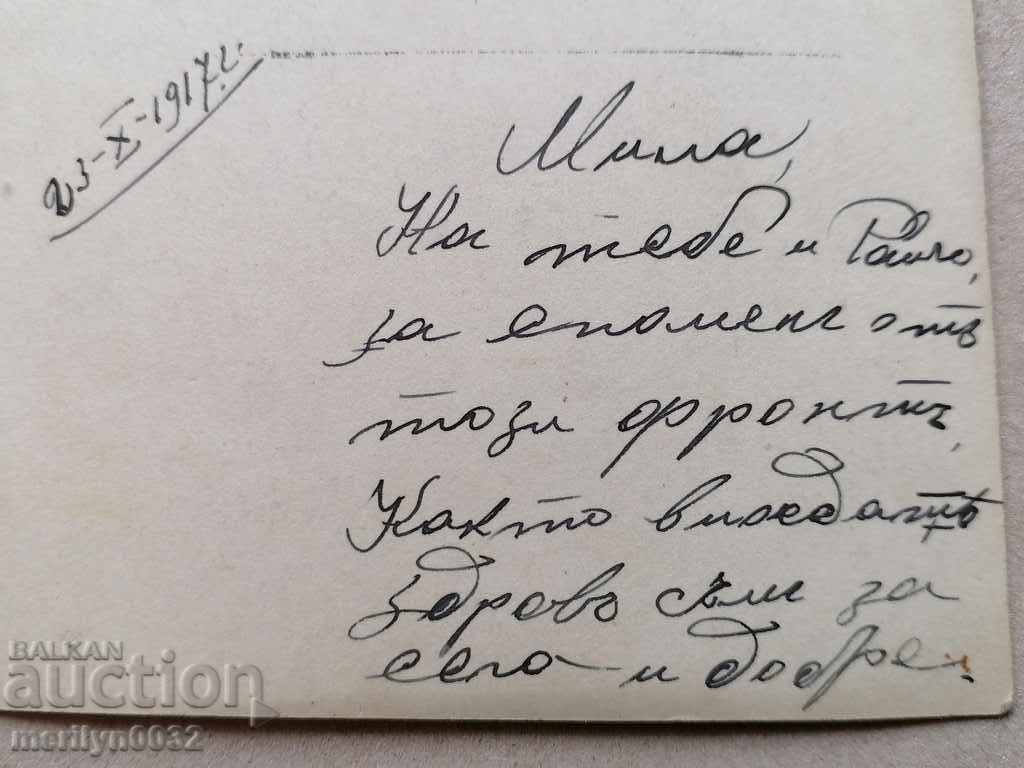 23-X-1917 г.
Мила,
На тебе и Райчо,
за спомен отъ
този фронтъ,
Както виждатѣ
здровъ съм за
сега и добре.
BALKAN
auction
merilyn0032